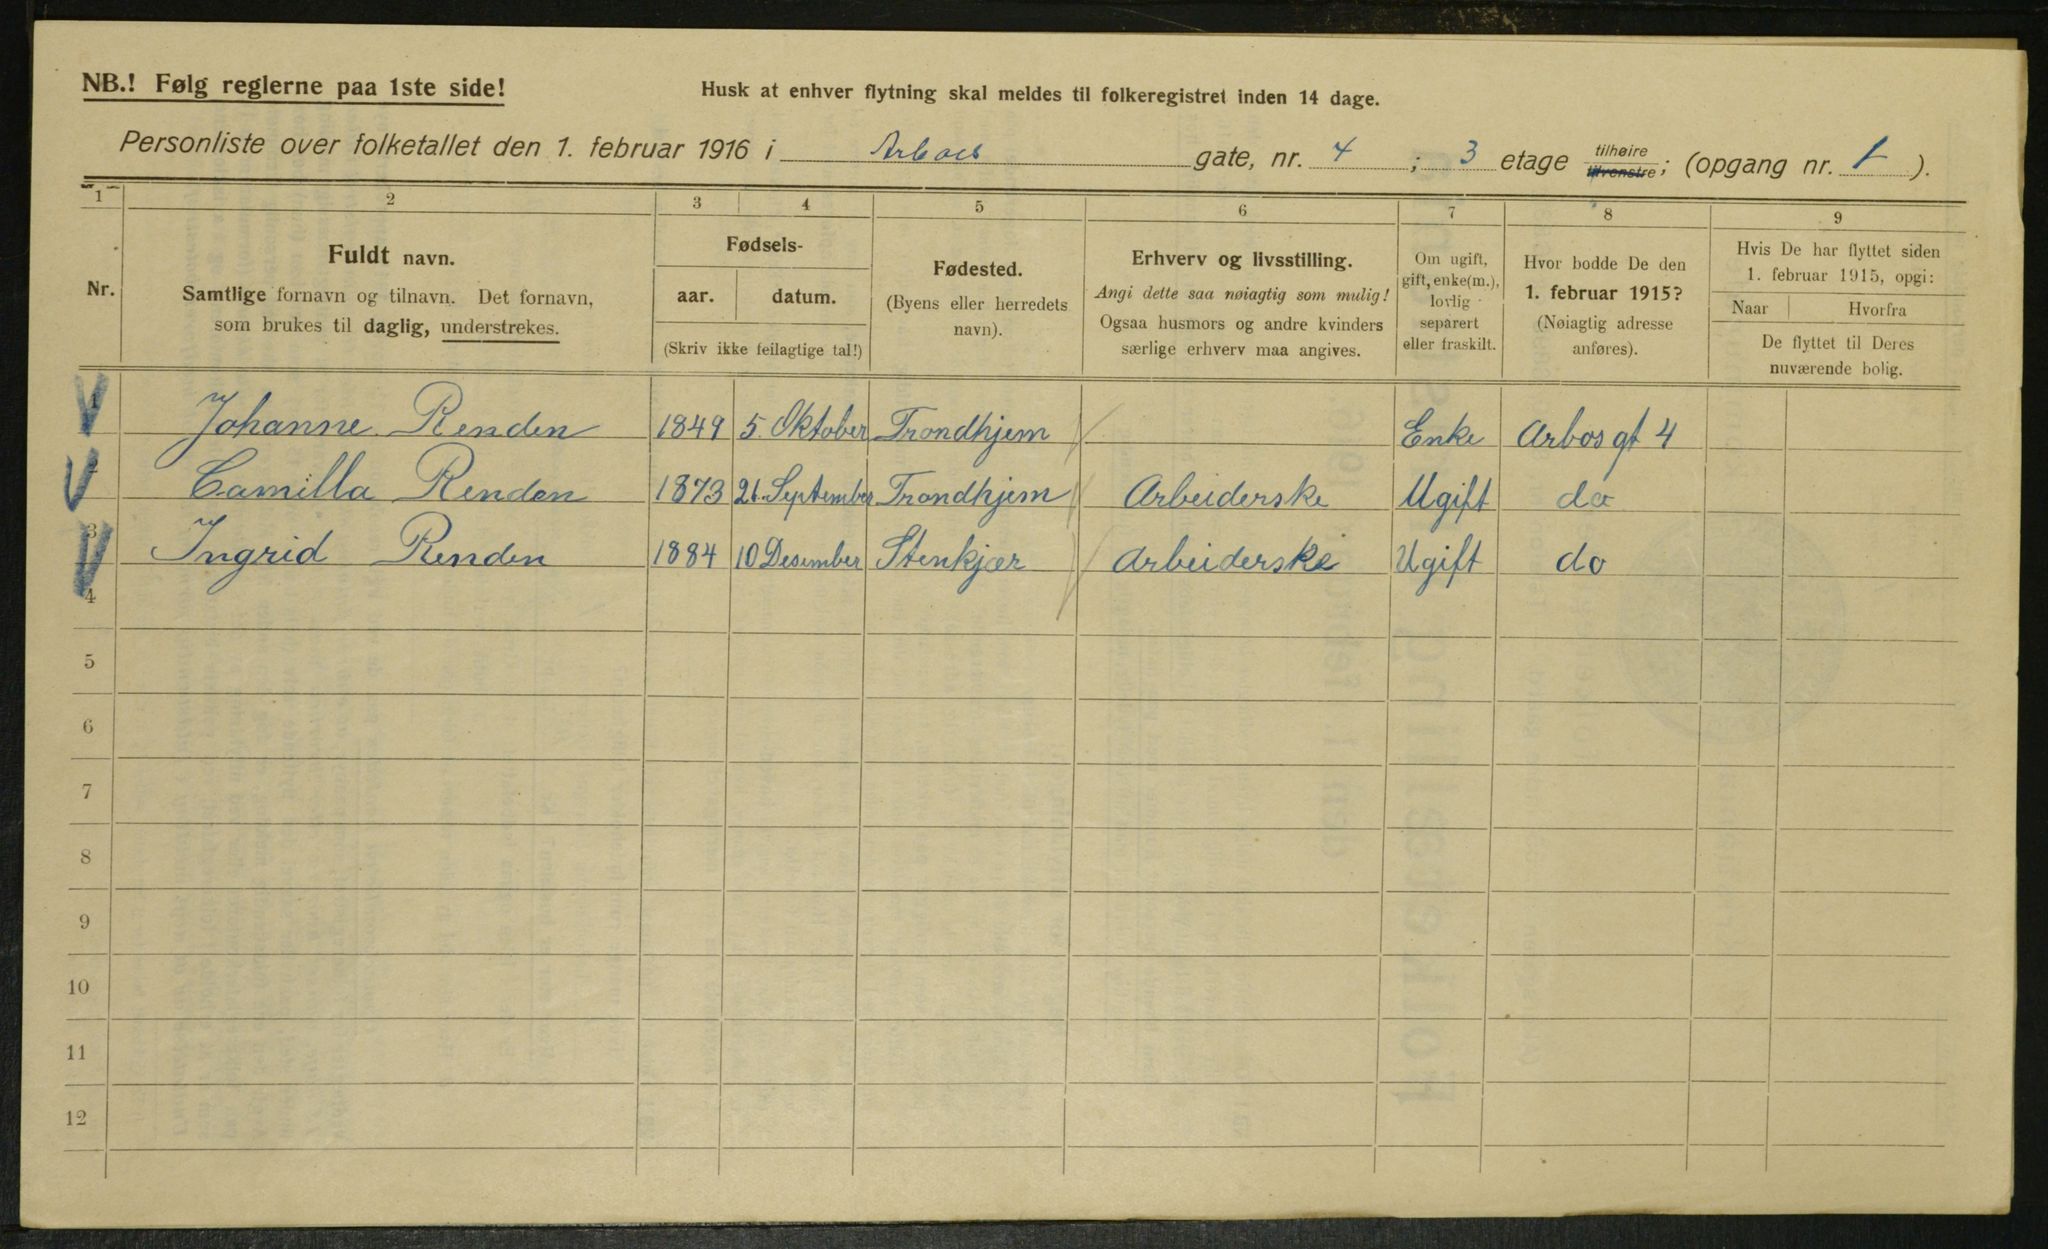 NB.! Følg reglerne paa 1ste side!
Husk at enhver flytning skal meldes til folkeregistret inden 14 dage.
Personliste over folketallet den 1. februar 1916 i Arboes gate, nr. 4; 3 etage tilhøire tilvenstre; (opgang nr. 1).
1 2 3 4 5 6 7 8 9
Nr.
Fuldt navn.
Samtlige fornavn og tilnavn. Det fornavn,
som brukes til daglig, understrekes.
Fødsels-
aar. datum.
(Skriv ikke feilagtige tal!)
Fødested.
(Byens eller herredets
navn).
Erhverv og livsstilling.
Angi dette saa nøiagtig som mulig!
Ogsaa husmors og andre kvinders
særlige erhverv maa angives.
Om ugift,
gift, enke(m.),
lovlig
separert
eller fraskilt.
Hvor bodde De den
1. februar 1915?
(Nøiagtig adresse
anføres).
Hvis De har flyttet siden
1. februar 1915, opgi:
Naar Hvorfra
De flyttet til Deres
nuværende bolig.
1 Johanne Renden 1849 5. Oktober Trondhjem Enke Arbos gt 4
2 Camilla Renden 1873 21. September Trondhjem Arbeiderske Ugift do
3 Ingrid Renden 1884 10 Desember Stenkjær Arbeiderske Ugift do
4
5
6
7
8
9
10
11
12